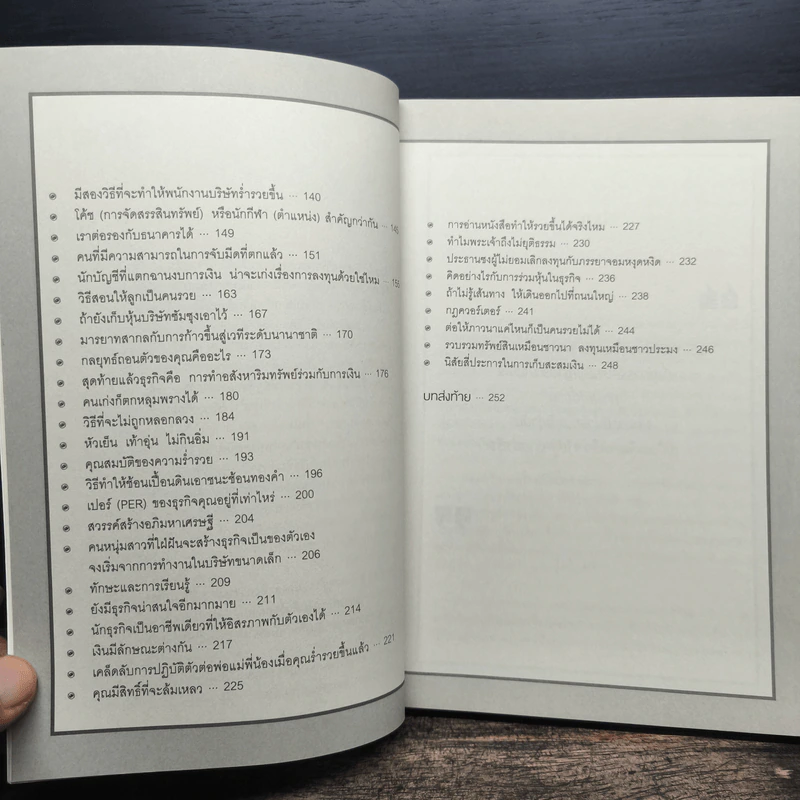 มีสองวิธีที่จะทำให้พนักงานบริษัทร่ำรวยขึ้น ... 140
โค้ช (การจัดสรรสินทรัพย์) หรือนักกีฬา (ตำแหน่ง) สำคัญกว่ากัน ...
เราต่อรองกับธนาคารได้ ... 149
คนที่มีความสามารถในการจับมีดที่ตกแล้ว ... 151
นักบัญชีที่แตกฉานงบการเงิน น่าจะเก่งเรื่องการลงทุนด้วยใช่ไหม ...
วิธีสอนให้ลูกเป็นคนรวย ... 163
ถ้ายังเก็บหุ้นบริษัทซัมซุงเอาไว้ ... 167
มารยาทสากลกับการก้าวขึ้นสู่เวทีระดับนานาชาติ ... 170
กลยุทธ์ถอนตัวของคุณคืออะไร ... 173
สุดท้ายแล้วธุรกิจคือ การทำอสังหาริมทรัพย์ร่วมกับการเงิน ... 176
คนเก่งก็ตกหลุมพรางได้ ... 180
วิธีที่จะไม่ถูกหลอกลวง ... 184
หัวเย็น เท้าอุ่น ไม่กินอิ่ม ... 191
คุณสมบัติของความร่ำรวย ... 193
วิธีทำให้ช้อนเปื้อนดินเอาชนะช้อนทองคำ ... 196
เปอร์ (PER) ของธุรกิจคุณอยู่ที่เท่าไหร่ ... 200
สวรรค์สร้างอภิมหาเศรษฐี ... 204
คนหนุ่มสาวที่ใฝ่ฝันจะสร้างธุรกิจเป็นของตัวเอง
จงเริ่มจากการทำงานในบริษัทขนาดเล็ก ... 206
ทักษะและการเรียนรู้ ... 209
ยังมีธุรกิจน่าสนใจอีกมากมาย ... 211
นักธุรกิจเป็นอาชีพเดียวที่ให้อิสรภาพกับตัวเองได้ ... 214
เงินมีลักษณะต่างกัน ... 217
เคล็ดลับการปฏิบัติตัวต่อพ่อแม่พี่น้องเมื่อคุณร่ำรวยขึ้นแล้ว ... 221
คุณมีสิทธิ์ที่จะล้มเหลว ... 225
การอ่านหนังสือทำให้รวยขึ้นได้จริงไหม ... 227
ทำไมพระเจ้าถึงไม่ยุติธรรม ... 230
ประธานซงผู้ไม่ยอมเลิกลงทุนกับภรรยาจอมหงุดหงิด ... 232
คิดอย่างไรกับการร่วมหุ้นในธุรกิจ ... 236
ถ้าไม่รู้เส้นทาง ให้เดินออกไปที่ถนนใหญ่ ... 238
กฎควอร์เตอร์ ... 241
ต่อให้ภาวนาแค่ไหนก็เป็นคนรวยไม่ได้ ... 244
รวบรวมทรัพย์สินเหมือนชาวนา ลงทุนเหมือนชาวประมง ... 246
นิสัยสี่ประการในการเก็บสะสมเงิน ... 248
บทส่งท้าย ... 252